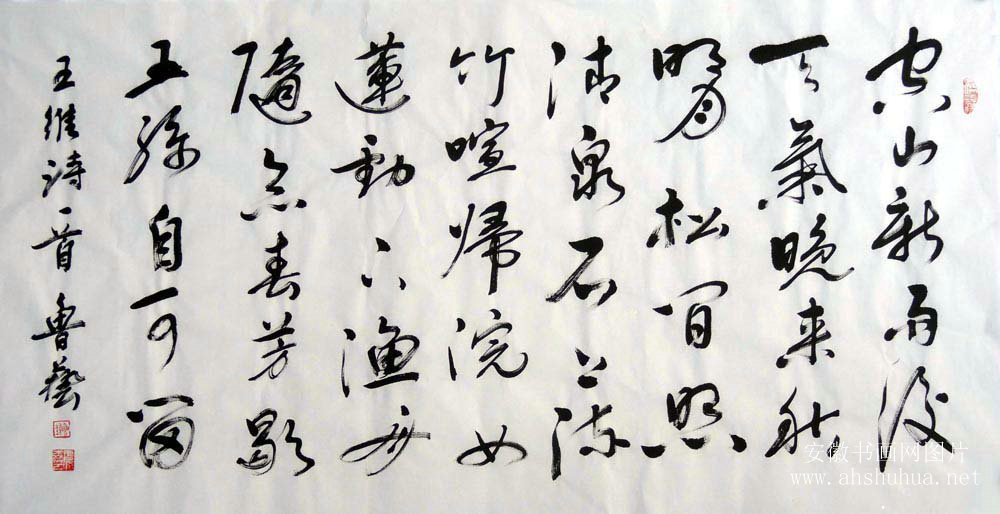 空山新雨後
天氣晚来秋
明月松间照
清泉石上流
竹喧帰浣女
蓮動下漁舟
隨意春芳歇
王孫自可留
王維詩一首 魯藝
安徽书画网图片
www.ahshuhua.net